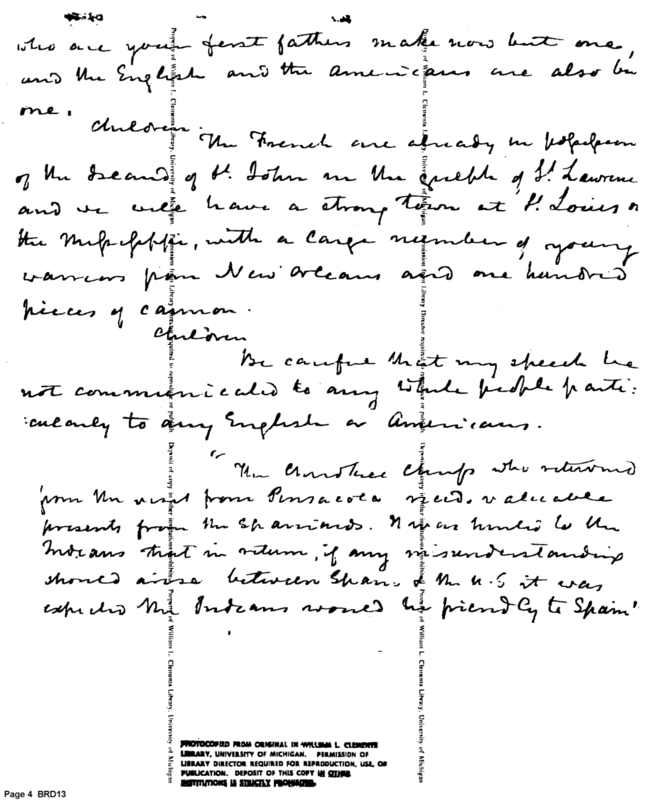 who are your first fathers make now but one,
and the English and the Americans are also but
one.
Children.
The French are already in possession
of the Island of St. John in the gulph of St. Lawrence
and we will have a strong town at St. Louis on
the Mississippi, with a large number of young
warriors from New Orleans and one hundred
pieces of cannon.
Children
Be careful that my speech be
not communicated to any white people parti:
:cularly to any English or Americans.
"The Cherokee Chiefs who returned
from the visit from Pensacola recd. valuable
presents from the Spaniards. It was hinted to the
Indians that in return, if any misunderstanding
should arise between Spain & the U.S it was
expected the Indians would be friendly to Spain"
Property of William L. Clements Library, University of Michigan
Property of William L. Clements Library, University of Michigan
PHOTOCOPIED FROM ORIGINAL IN WILLIAM L. CLEMENTS
LIBRARY, UNIVERSITY OF MICHIGAN. PERMISSION OF
LIBRARY DIRECTOR REQUIRED FOR REPRODUCTION, USE, OR
PUBLICATION. DEPOSIT OF THIS COPY IN OTHER
INSTITUTIONS IS STRICTLY PROHIBITED.
Page 4 BRD13